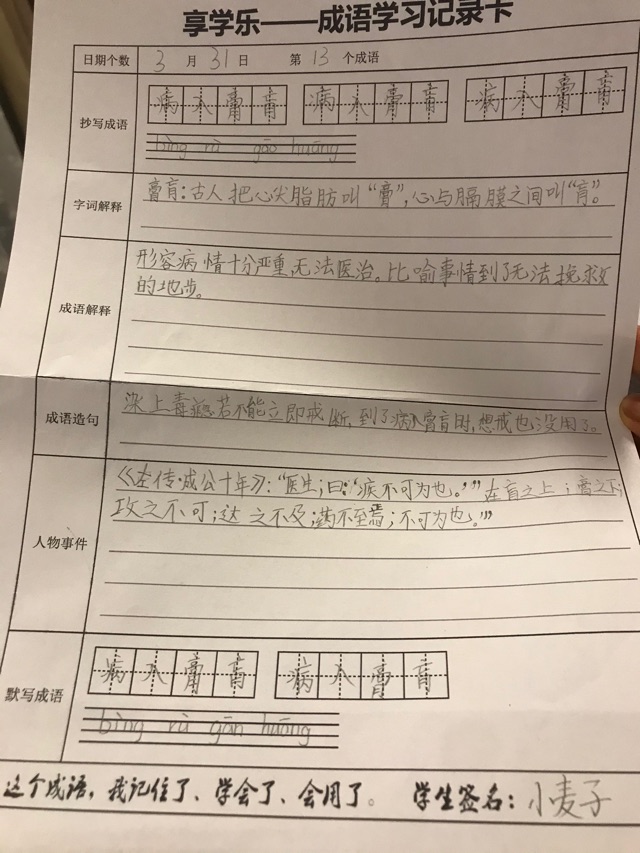 享学乐——成语学习记录卡
日期个数 3 月 31 日 第 13 个成语
抄写成语 病入膏肓 病入膏肓 病入膏肓
bìng rù gāo huāng
字词解释 膏肓:古人把心尖脂肪叫“膏”,心与膈膜之间叫“肓”。
成语解释 形容病情十分严重,无法医治。比喻事情到了无法挽救
的地步。
成语造句 染上毒瘾若不能立即戒断,到了病入膏肓时,想戒也没用了。
人物事件 《左传·成公十年》:“医生;曰:‘疾不可为也。’”在肓之上;膏之下;
攻之不可;达之不及;药不至焉;不可为也。’”
默写成语 病入膏肓 病入膏肓
bìng rù gān huāng
这个成语,我记住了、学会了、会用了。 学生签名:小麦子